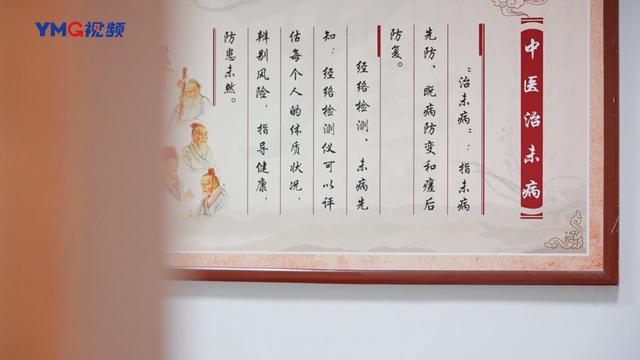 YMG视频
中医治未病
“治未病”：指未病
先防、既病防变和瘥后
防复。
经络检测、未病先
知：经络检测仪可以评
估每个人的体质状况，
辨别风险，指导健康，
防患未然。